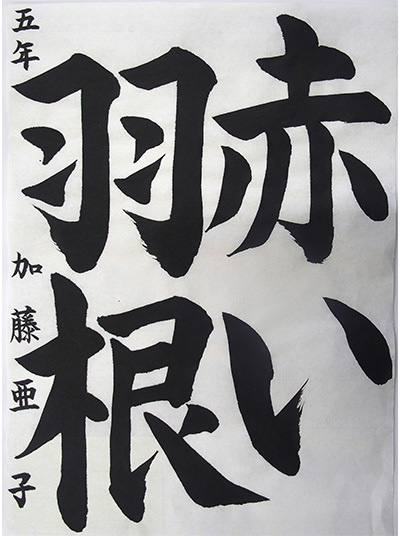 赤い
羽根
五年 加藤亜子